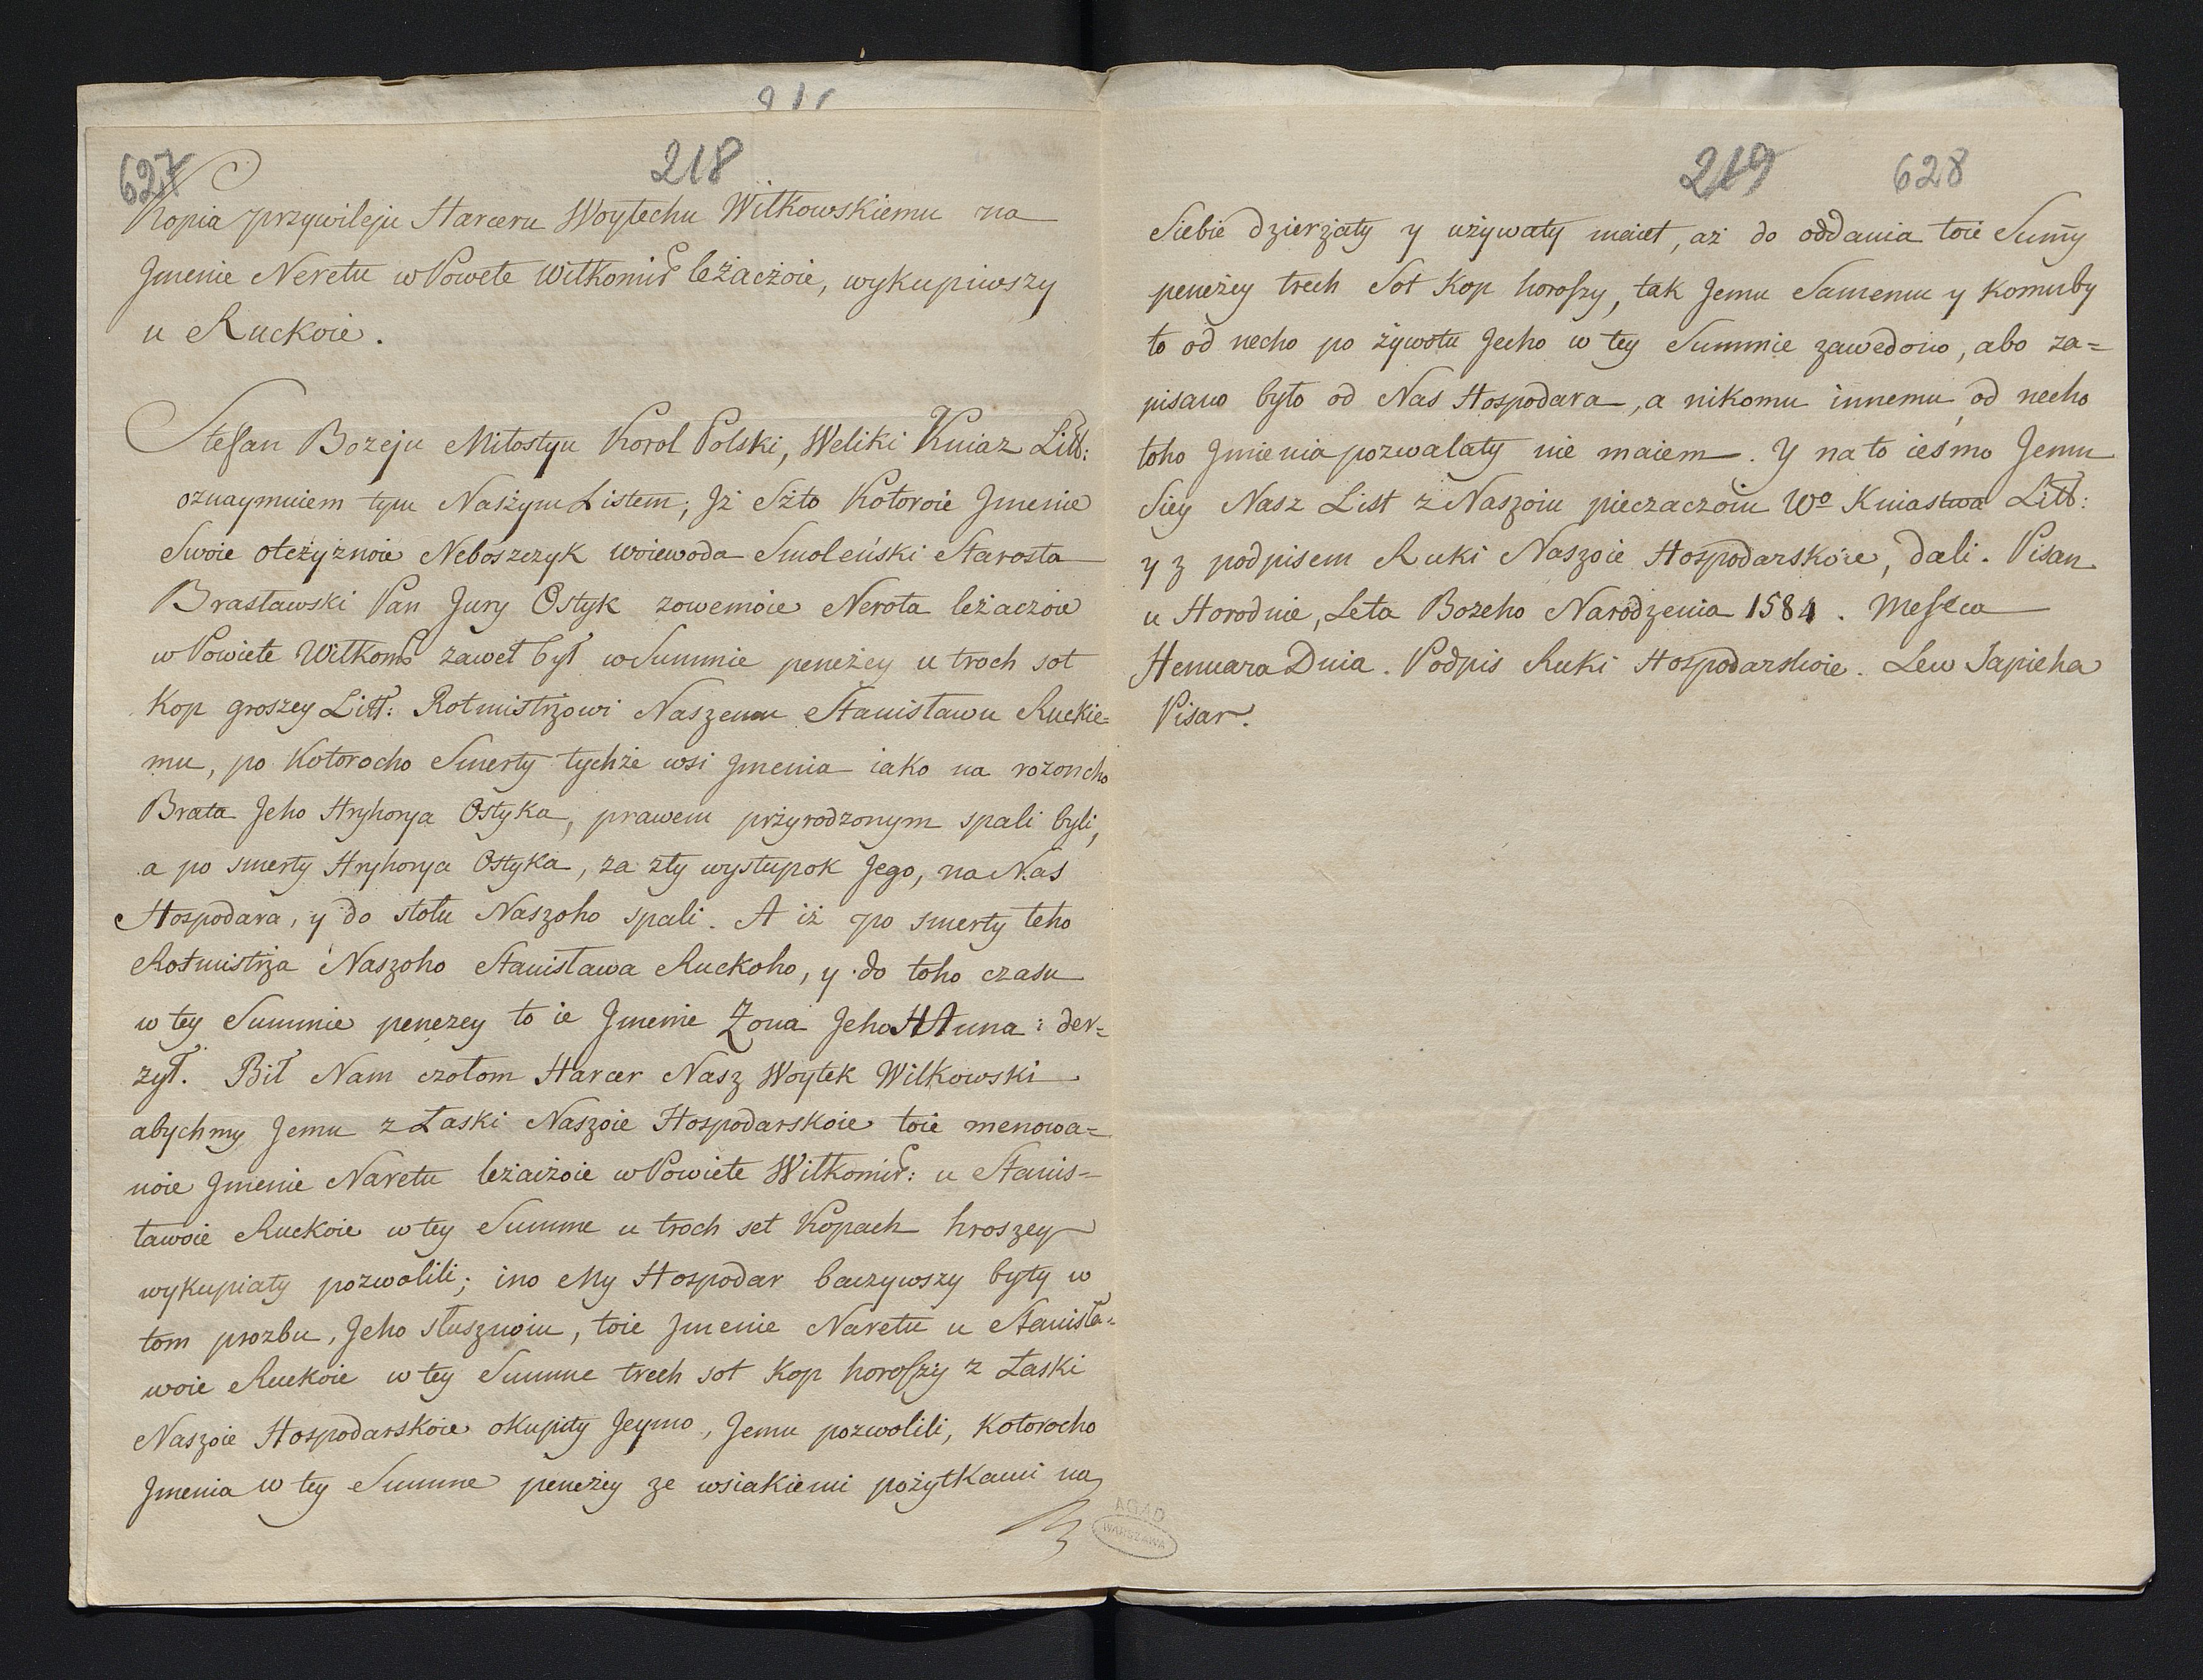 627
218
Kopia przywileju Harceru Woytechu Witkowskiemu na
Jmenie Neretu w Powete Wilkomir leżaczoie, wykupiwszy
u Ruckoie.
Stefan Bożeju Miłostyu Korol Polski, Weliki Kniaz Litt:
oznaymuiem tym Nażym Listem; Jż Szto Kotoroie Jmenie
Swoie oteżyznoie Neboszczyk woiewoda Smoleński Starosta
Brasławski Pan Jury Ostyk zowemoie Nerota leżaczoie
w Powiete Wilkom zaweł był w Summie peneżey u troch sot
Kop groszey Litt: Rotmistrzowi Naszemu Stanisławu Ruckie=
mu, po Kotorocho Smerty tychże wsi Jmenia iako na rozoncho
Brata Jeho Hryhorya Ostyka, prawem przyrodzonym spali byli,
a po smerty Hryhorya Ostyka, za zły wystupok Jego, na Nas
Hospodara, y do stołu Naszoho spali. A iż po smerty teho
Rotmistrza Naszoho Stanisława Ruckoho, y do toho czasu
w tey Summie penezey to ie Jmenie Żona Jeho HAnna: der=
zył. Bił Nam czołom Harcer Nasz Woytek Wilkowski
abychmy Jemu z Łaski Naszoie Hospodarskoie toie menowa=
noie Jmenie Naretu leżaiżoie w Powiete Wilkomir: u Stanis=
ławoie Ruckoie w tey Summe u troch set Kopach hroszey
wykupiaty pozwolili; ino My Hospodar baczywszy byty w
tom prozbu, Jeho słusznoiu, toie Jmenie Naretu u Stanisła=
woie Ruckoie w tey Summe trech sot Kop horoszy z Łaski
Naszoie Hospodarskoie okupity Jeymo, Jemu pozwolili, Kotorocho
Jmenia w tey Summe peneżey ze wsiakiemi pożytkami na
AGAD
WARSZAWA
219 628
Siebie dzierżaty y używaty maiet, aż do oddania toie Sum̃y
peneżey trech Sot Kop horoszy, tak Jemu Samemu y komuby
to od necho po żywotu Jecho w tey Summie zawedono, abo za=
pisano było od Nas Hospodara, a nikomu innemu od necho
toho Jmienia pozwalaty nie maiem. Y na to ieśmo Jemu
Siey Nasz List z Naszoiu pieczaczoiu Wo Kniastwa Litt:
y z podpisem Ruki Naszoie Hospodarskoie, dali. Pisan
u Horodnie, Leta Bożeho Narodzenia 1584. Meseca
Henuara Dnia. Podpis Ruki Hospodarskoie. Lew Sapieha
Pisar.